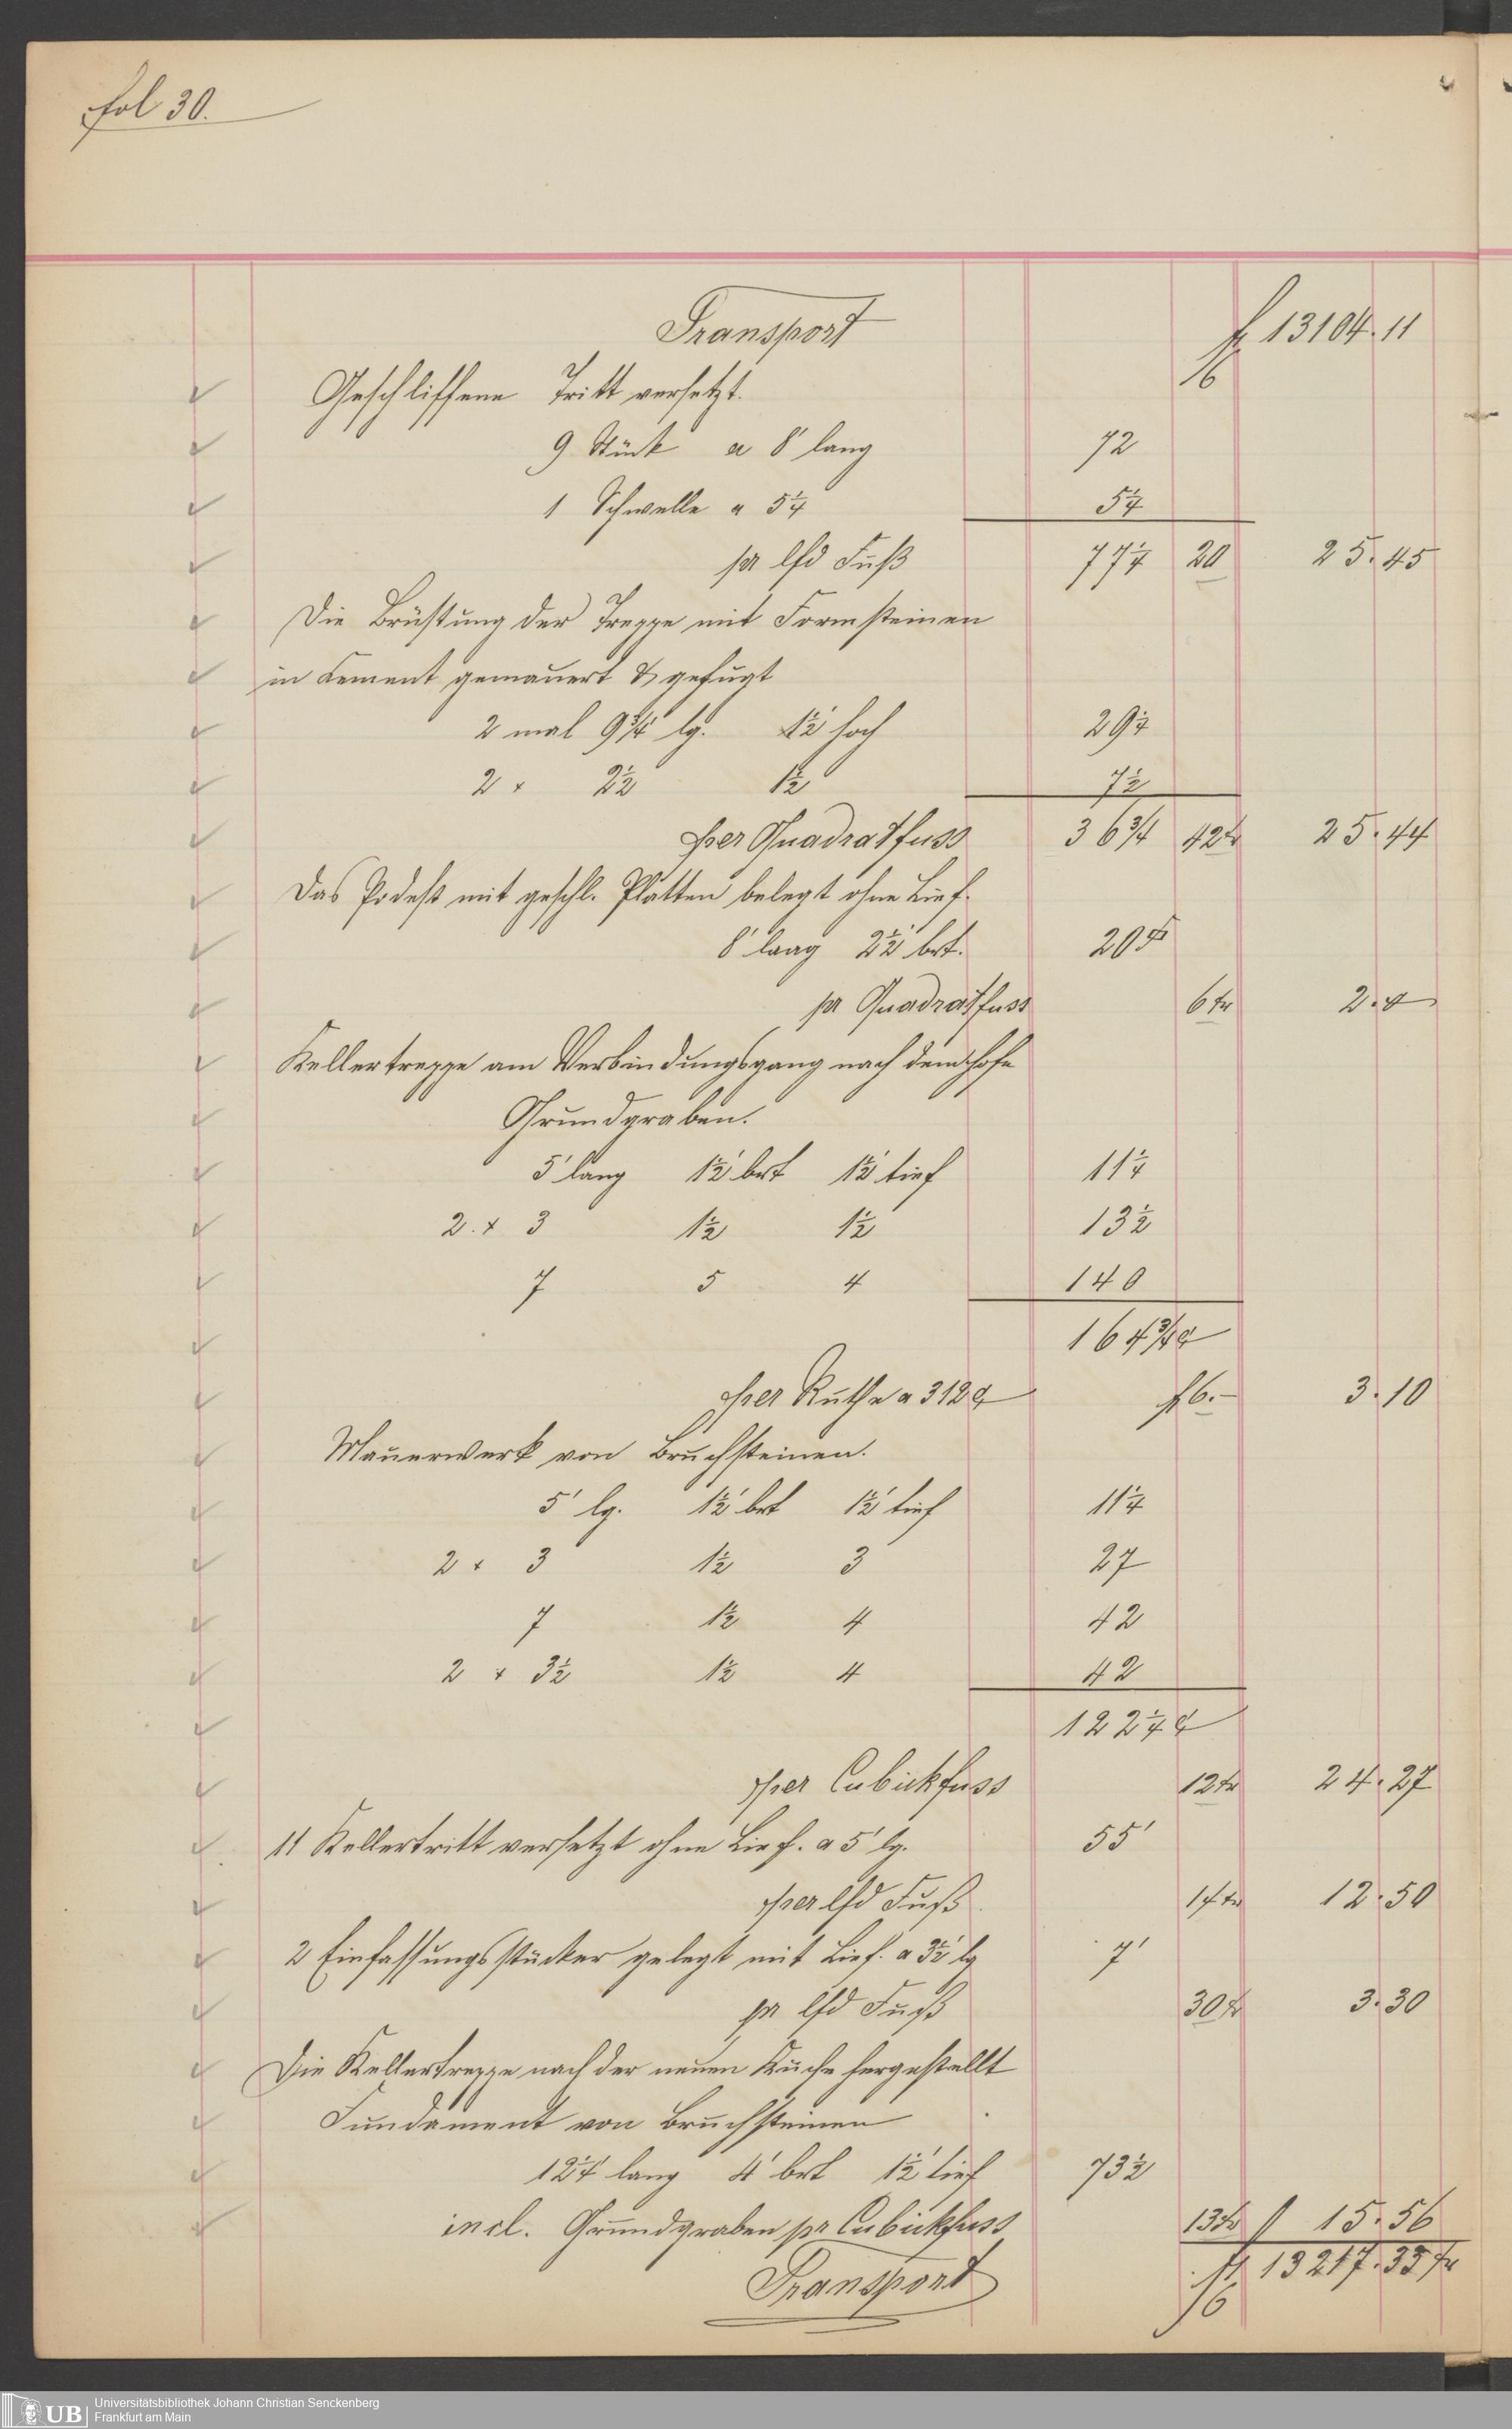 fol 30.
Transport fl 13104.11
Geschliffene Tritt versetzt.
9 Stück a 8' lang 72
1 Schwelle a 5¼ 5¼
pr lfd Fuß 77¼ 20 25.45
Die Brüstung der Treppe mit Formsteinen
in Cement gemauert & gefugt
2 mal 9¾' lg. 1½' hoch 29¼
2 × 2½ 1½ 7½
per Quadratfuss 36¾ 42kr 25.44
Das Podest mit geschl. Platten belegt ohne Lief.
8' lang 2½' brt. 20
pr Quadratfuss 6kr 2.–
Kellertreppe am Verbindungsgang nach dem Hofe
Grundgraben.
5' lang 1½' brt 1½' tief 11¼
2 × 3 1½ 1½ 13½
7 5 4 140
164¾
per Ruthe a 312 f 6.– 3.10
Mauerwerk von Bruchsteinen.
5' lg. 1½' brt 1½' tief 11¼
2 × 3 1½ 3 27
7 1½ 4 42
2 × 3½ 1½ 4 42
122¼
per Cubickfuss 12kr 24.27
11 Kellertritt versetzt ohne Lief. a 5' lg. 55'
per lfd Fuß 14kr 12.50
2 Einfassungsstücker gelegt mit Lief. a 3½' lg 7'
pr lfd Fuß 30kr 3.30
Die Kellertreppe nach der neuen Küche hergestellt
Fundament von Bruchsteinen
12¼' lang 4' brt 1½' tief 73½
incl. Grundgraben pr Cubickfuss 13kr 15.56
Transport fl 13217.33 kr
UB Universitätsbibliothek Johann Christian Senckenberg
Frankfurt am Main